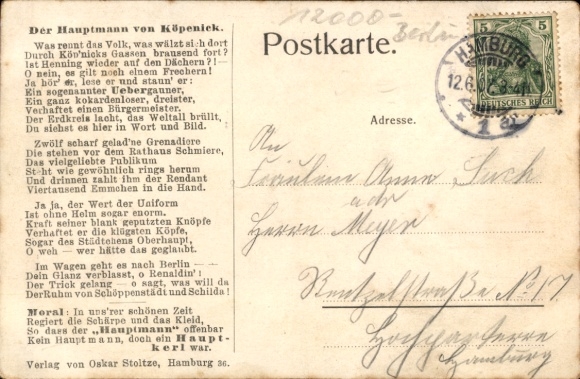 Der Hauptmann von Köpenick.
Was rennt das Volk, was wälzt sich dort
Durch Köp'nicks Gassen brausend fort?
Ist Henning wieder auf den Dächern?! —
O nein, es gilt noch einem Frechern!
Ja hör' er, lese er und staun' er:
Ein sogenannter Uebergauner,
Ein ganz kokardenloser, dreister,
Verhaftet einen Bürgermeister.
Der Erdkreis lacht, das Weltall brüllt,
Du siehst es hier in Wort und Bild.
Zwölf scharf gelad'ne Grenadiere
Die stehen vor dem Rathaus Schmiere,
Das vielgeliebte Publikum
Steht wie gewöhnlich rings herum
Und drinnen zahlt ihm der Rendant
Viertausend Emmchen in die Hand.
Ja ja, der Wert der Uniform
Ist ohne Helm sogar enorm.
Kraft seiner blank geputzten Knöpfe
Verhaftet er die klügsten Köpfe,
Sogar des Städtchens Oberhaupt,
O weh — wer hätte das geglaubt.
Im Wagen geht es nach Berlin —
Dein Glanz verblasst, o Renaldin'!
Der Trick gelang — o sagt, was will da
Der Ruhm von Schöppenstädt und Schilda!
Moral: In uns'rer schönen Zeit
Regiert die Schärpe und das Kleid,
So dass der „Hauptmann" offenbar
Kein Hauptmann, doch ein Haupt-
kerl war.
Verlag von Oskar Stoltze, Hamburg 36.
12000-
Berlin
Postkarte.
Adresse.
5 5
DEUTSCHES REICH
HAMBURG
12.6.
* 1
An
Fräulein Anna
adr
Herrn Meyer
Rentzelstraße No 17
Hochparterre
Hamburg